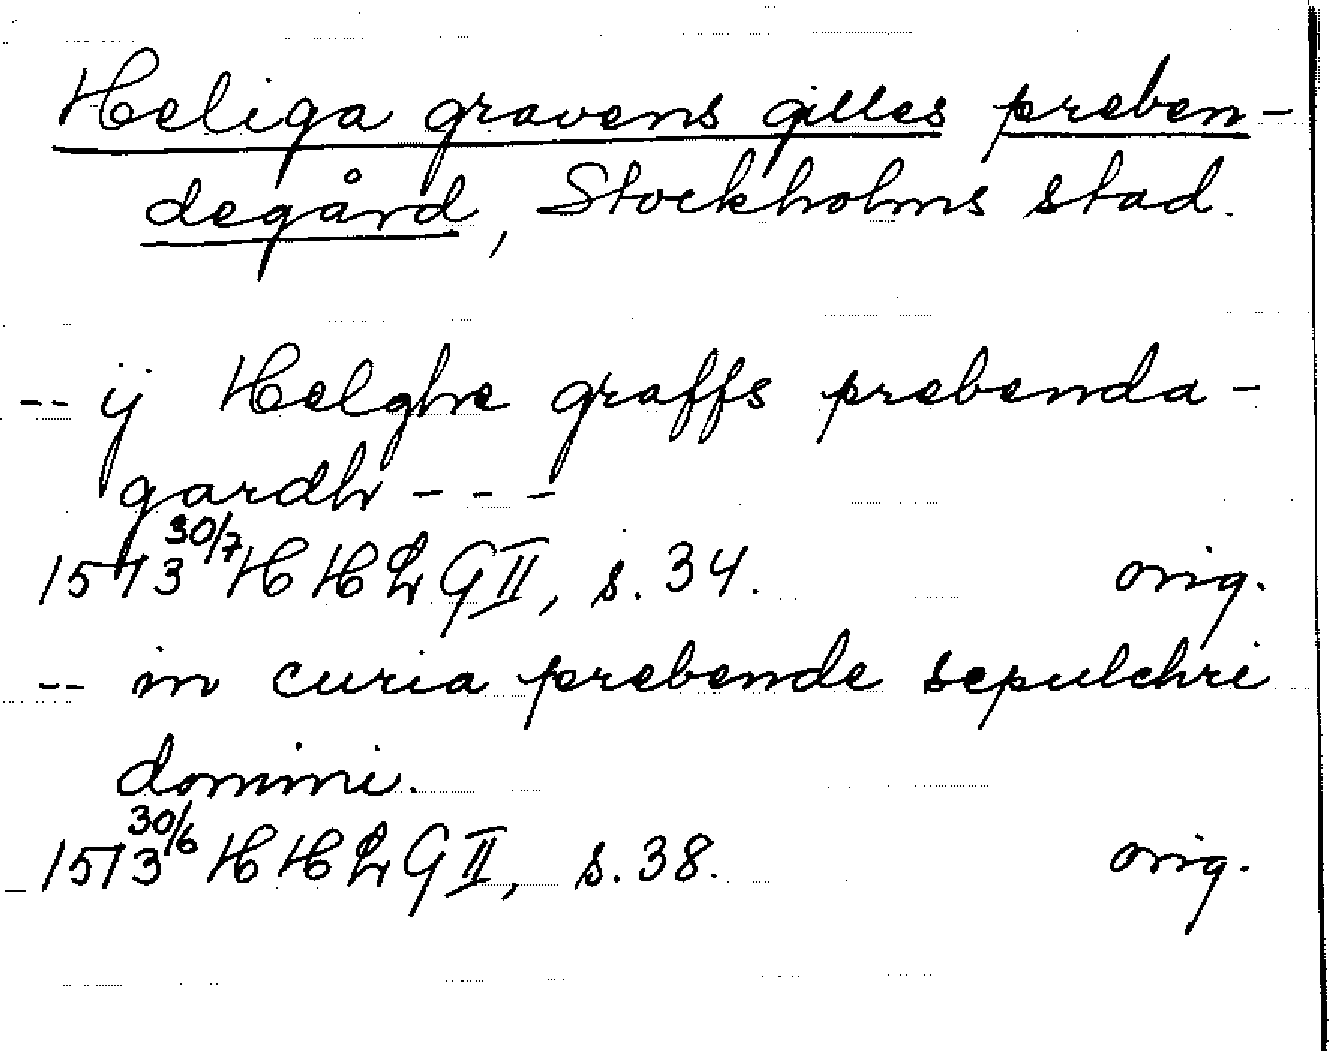 Heliga gravens gilles preben-
degård, Stockholms stad.
-- ij Helghe graffs prebenda-
gardh ---
1513 30/7 HHLG II, s. 34. orig.
-- in curia prebende sepulchri
domini.
1513 30/6 HHLG II, s. 38. orig.